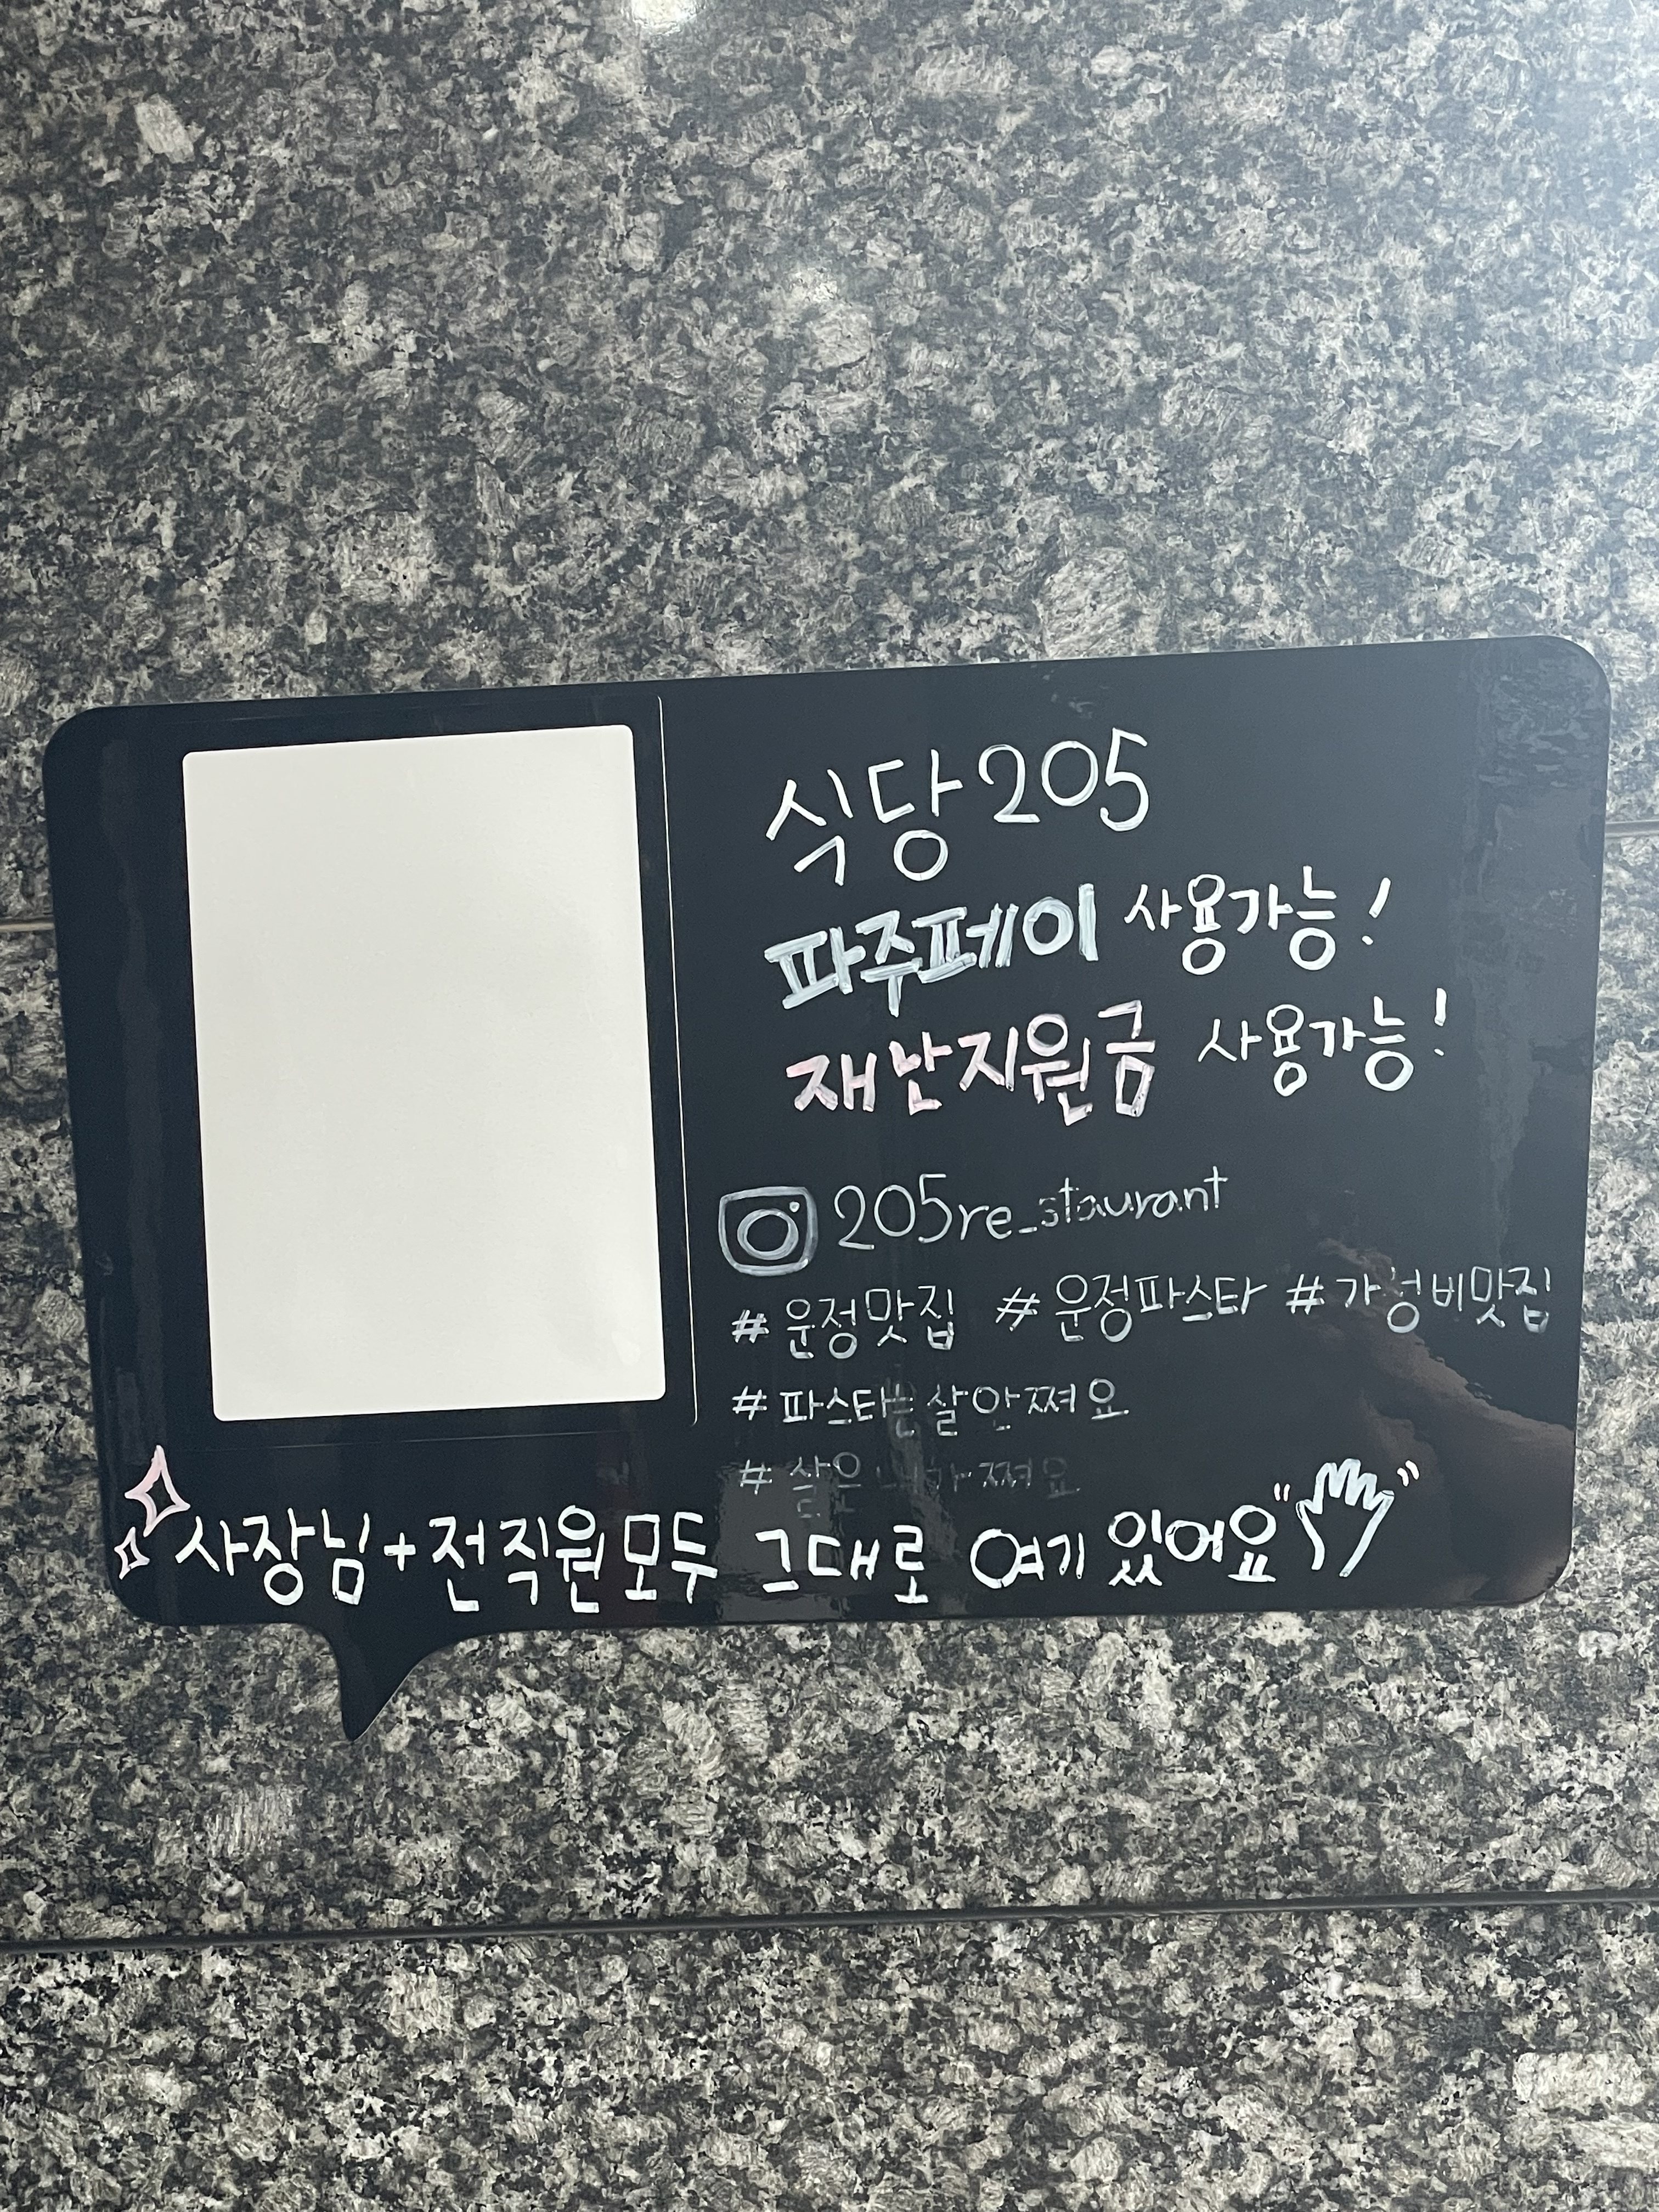 식당205
파주페이 사용가능!
재난지원금 사용가능!
205re_staurant
#운정맛집 #운정파스타 #가성비맛집
#파스타는살안쪄요
#살은 쪄요
사장님+전직원모두 그대로 여기 있어요